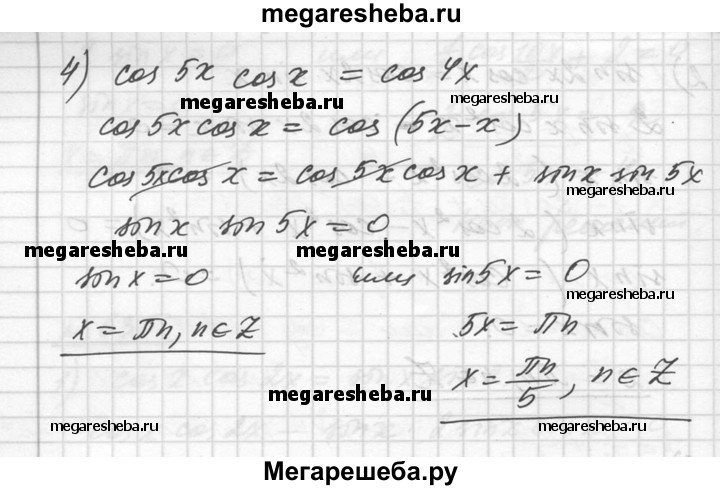 megaresheba.ru
4) cos 5x cos x = cos 4x
megaresheba.ru megaresheba.ru
cos 5x cos x = cos (5x-x)
cos 5x cos x = cos 5x cos x + sin x sin 5x
megaresheba.ru
sin x sin 5x = 0
megaresheba.ru megaresheba.ru
sin x = 0 или sin 5x = 0
x = πn, n ∈ Z 5x = πn
megaresheba.ru
x = πn/5, n ∈ Z
megaresheba.ru megaresheba.ru
megaresheba.ru
Мегарешеба.ру